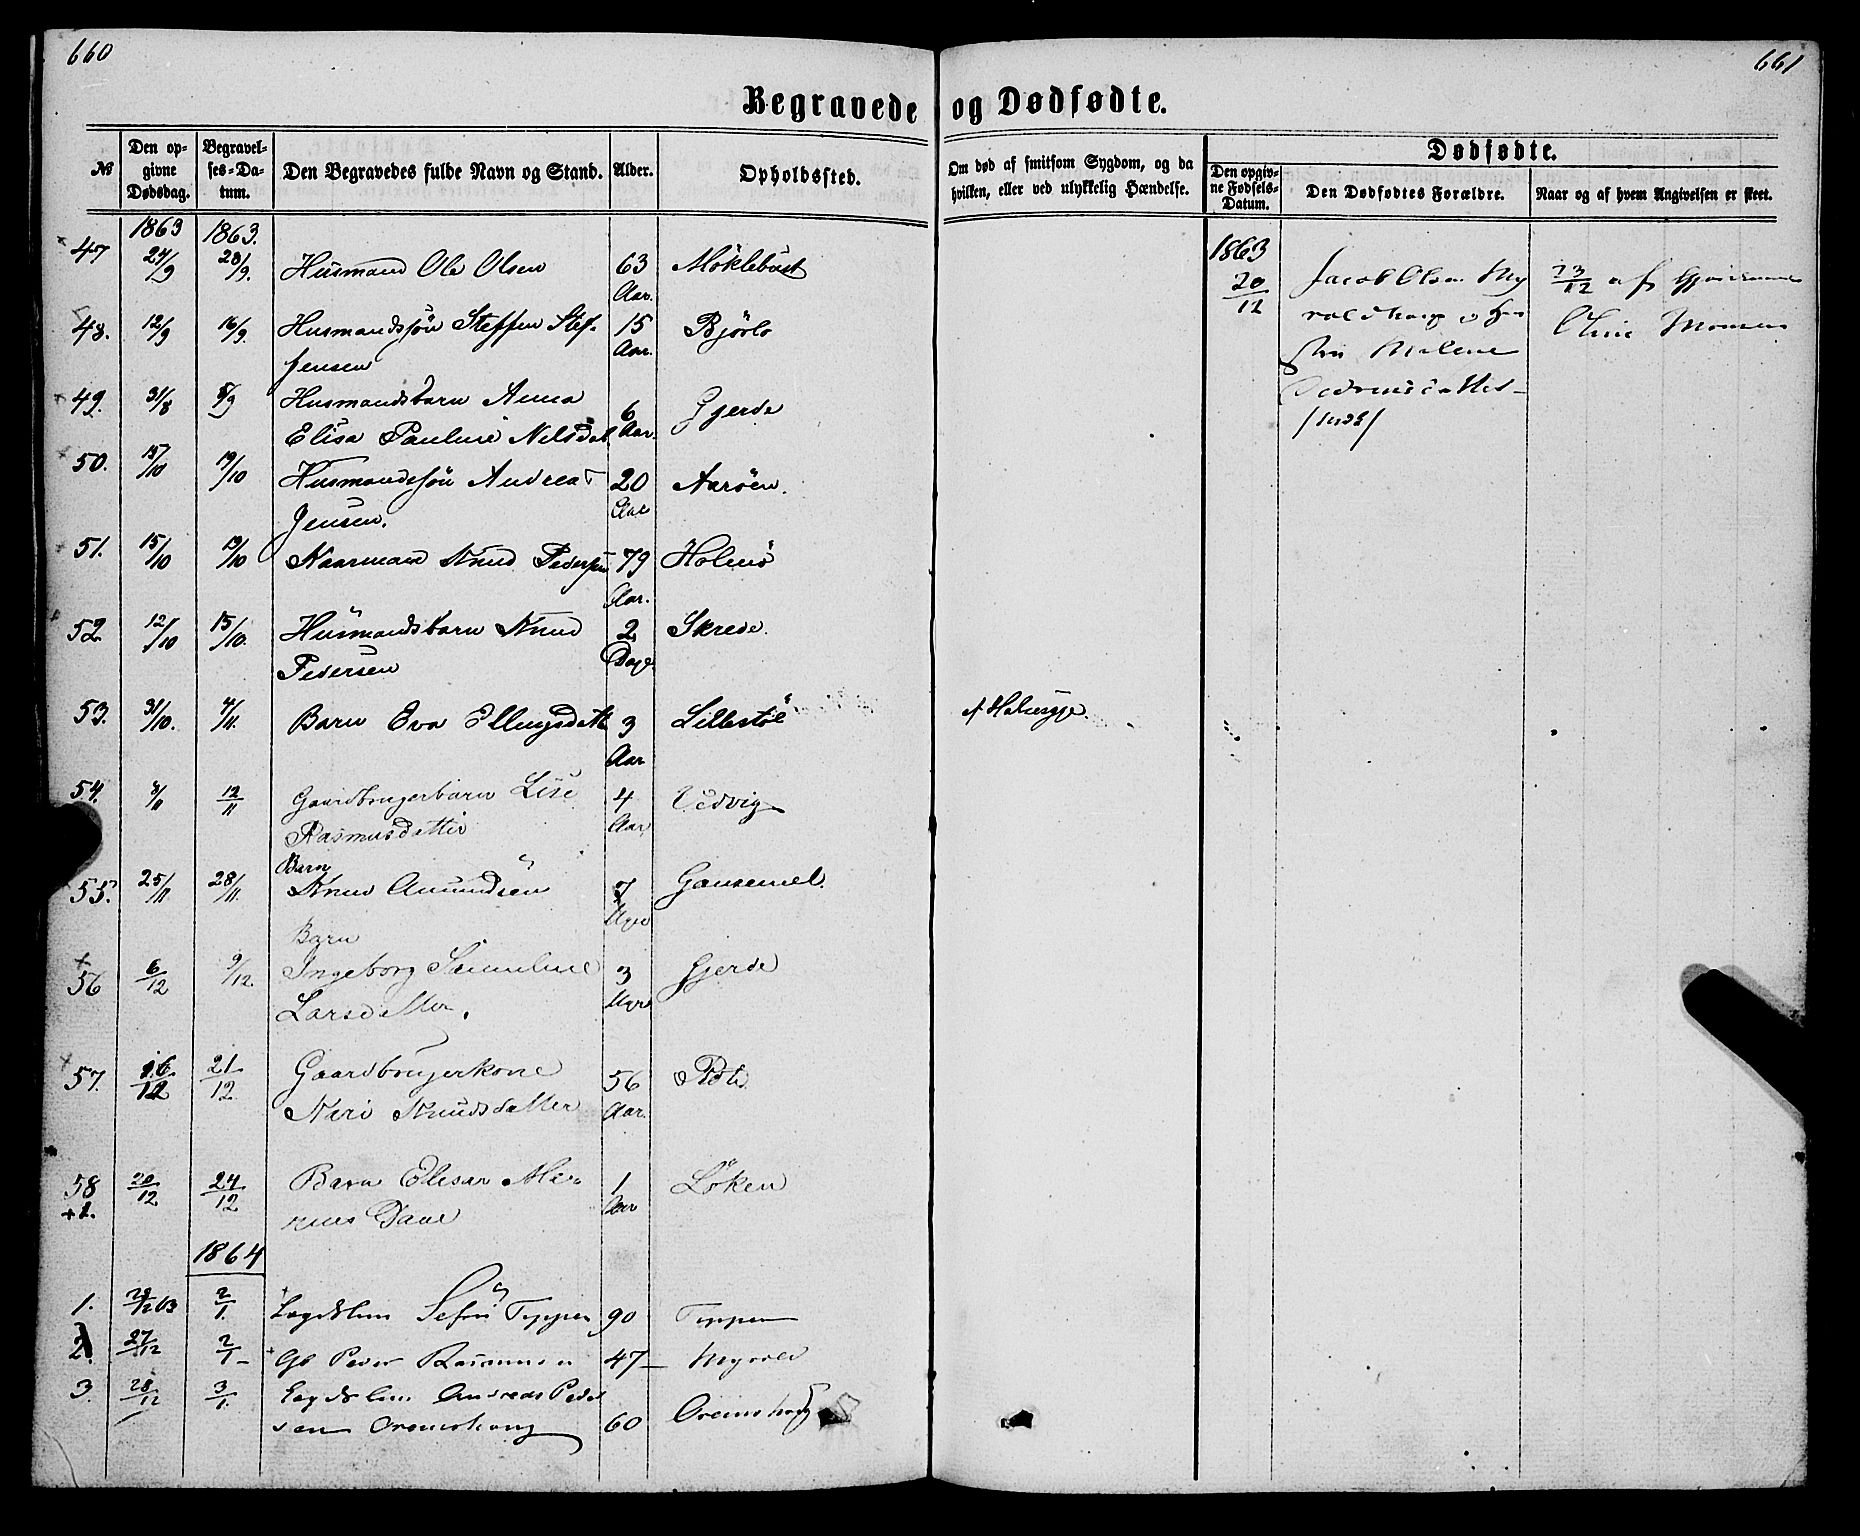 660
661
Begravede og Dødfødte.
№
Den opgivne Dødsdag.
Begravelses-Datum.
Den Begravedes fulde Navn og Stand.
Alder.
Opholdssted.
Om død af smitsom Sygdom, og da hvilken, eller ved ulykkelig Hændelse.
Dødfødte.
Den opgivne Fødsels-Datum.
Den Dødfødtes Forældre.
Naar og af hvem Angivelsen er skeet.
1863 1863. 1863
47 24/9 28/9. Husmand Ole Olsen 63 Aar. Møklebust
20/12 Jacob Olsen My
23/12 af
Oline Monsen
Malene
48. 12/9 16/9. Husmandssøn Steffen Stef-
fensen 15 Aar. Bjørlo
49. 31/8 5/9 Husmandsbarn Anna
Elisa Pauline Nilsdat. 6 Aar. Gjerde
50. 15/10 19/10 Husmandssøn Andreas
Jensen. 20 Aar Aarøen.
51. 15/10 19/10 Kaarmand Knud Pedersen 79 Aar. Holmø
52. 12/10 15/10. Husmandsbarn Knud
Pedersen 2 Dage Skrede.
53. 31/10. 4/11. Barn Eva Ellingsdatt 3 Aar Lillestøl
54. 3/11 12/11 Gaardbrugerbarn Lise
Rasmusdatter 4 Aar Vedvig
Barn
55. 25/11 28/11. Knud Amundsen 7 Uger Gausemel.
Barn
56 6/12 9/12. Ingeborg Samuline
Larsdatter. 3 Uger Gjerde
57. 16/12 21/12 Gaardbrugerkone
Knudsdatter 56 Aar.
58 20/12 24/12 Barn
1 Aar Løken
+1.
1864
1. 2/1. 90
2. 27/12 2/1 Gb Peder Rasmusen 47
3. 28/12 3/1. Andreas Peder
sen 60